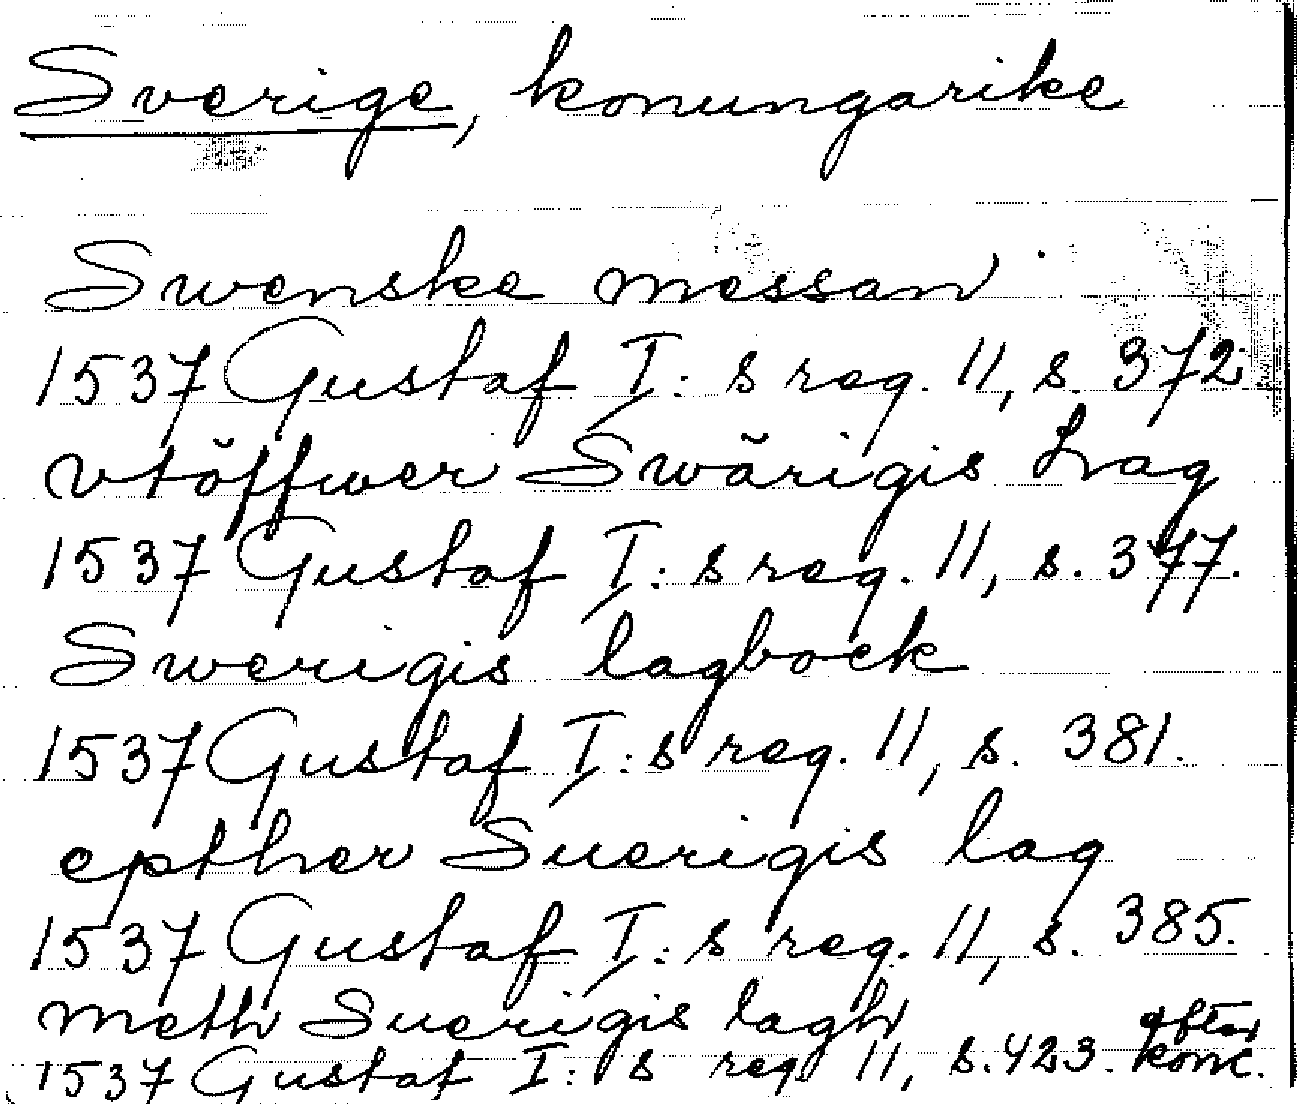 Sverige, konungarike
Swenske messan
1537 Gustaf I:s reg. 11, s. 372.
vtöffwer Swärigis Lag
1537 Gustaf I:s reg. 11, s. 377.
Swerigis lagbock
1537 Gustaf I:s reg. 11, s. 381.
epther Suerigis lag
1537 Gustaf I:s reg. 11, s. 385.
meth Suerigis lagh
1537 Gustaf I:s reg 11, s. 423. efter konc.